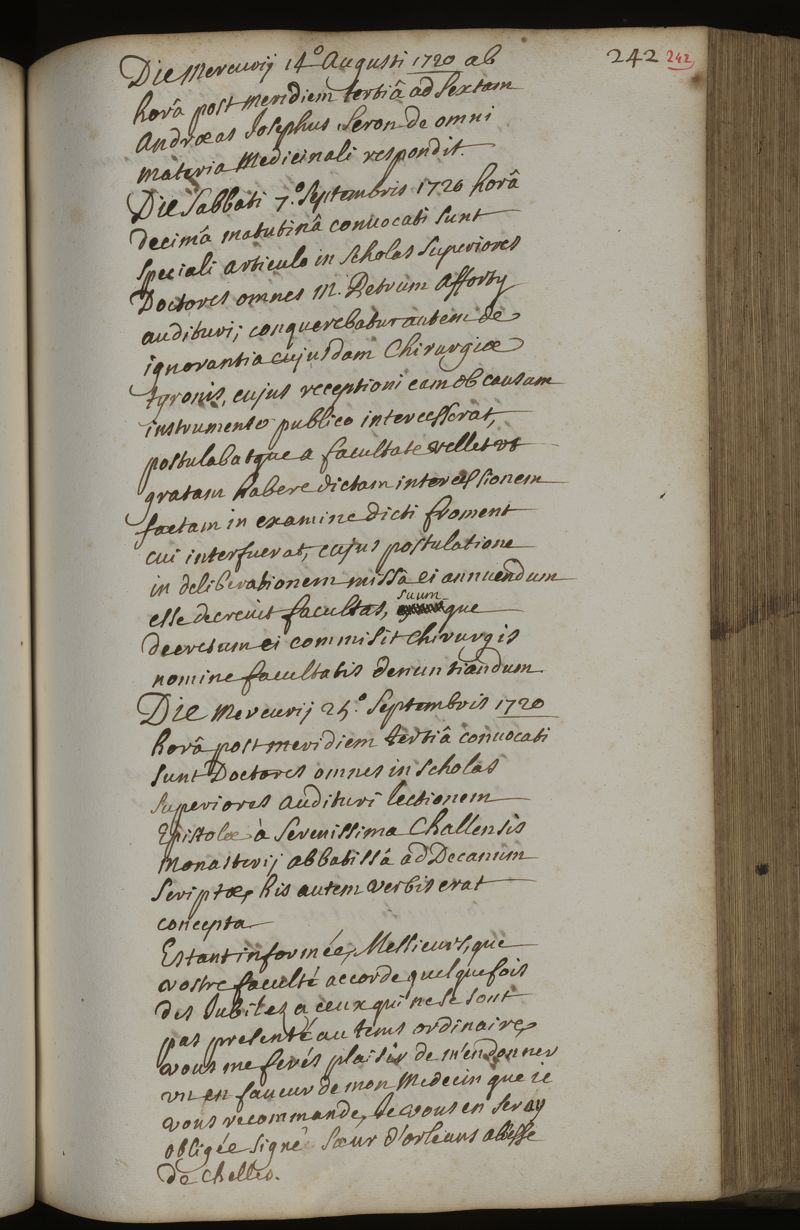 242 242
Die Mercurij 14.° Augusti 1720 ab
horâ post meridiem tertiâ ad sextam
Andræas Josephus Seron de omni
materia Medicinali respondit.
Die Sabbati 7.° Septembris 1720 horâ
decimâ matutinâ convocati sunt
speciali articulo in scholas superiores
Doctores omnes M. Petrum Afforty
audituri; conquerebatur autem de
ignorantia cujusdam Chirurgiæ
tyronis, cujus receptioni eam ob causam
instrumento publico intercesserat,
postulabatque a facultate vellet ut
gratam habere dictam intercessionem
factam in examine dicti froment
cui interfuerat, cujus postulatione
in deliberationem missâ ei annuendum
esse decrevit facultas, suum que
decretum ei commisit chirurgis
nomine facultatis denuntiandum.
Die Mercurij 25.° Septembris 1720
horâ post meridiem tertiâ convocati
sunt Doctores omnes in scholas
superiores audituri lectionem
Epistolæ à Serenissima Challensis
Monasterij abbatissâ ad Decanum
scriptæ, his autem verbis erat
concepta.
Estant informée, Messieurs, que
vostre faculté accorde quelquefois
des Jubilez a ceux qui ne se sont
pas presenté au tems ordinaire,
vous me ferés plaisir de m'en donner
un en faveur de mon Medecin que ie
vous recommande, Je vous en seray
obligée signé Sœur d'orleans abbesse
de Chelles.